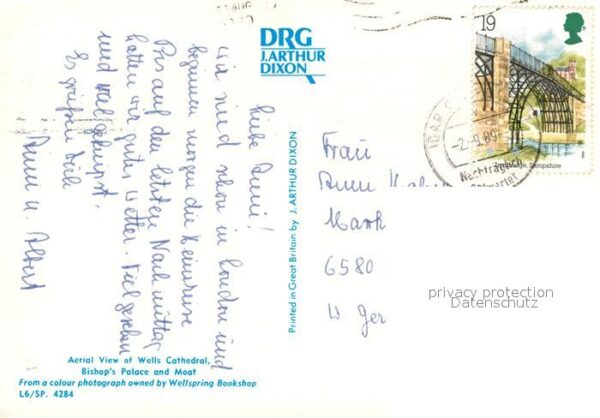 DRG
J. ARTHUR
DIXON
Liebe Anni!
Wir sind schon in London und
beginnen morgen die Heimreise.
Bis auf den letzten Nachmittag
hatten wir gutes Wetter. Viel gesehen
und viel
Es grüßen Dich
Anni u. Albert
Printed in Great Britain by J. ARTHUR DIXON
19
Ironbridge, Shropshire
-2.-9.89
Nachträglich
entwertet
Frau
6580
W Ger
privacy protection
Datenschutz
Aerial View of Wells Cathedral,
Bishop's Palace and Moat
From a colour photograph owned by Wellspring Bookshop
L6/SP. 4284